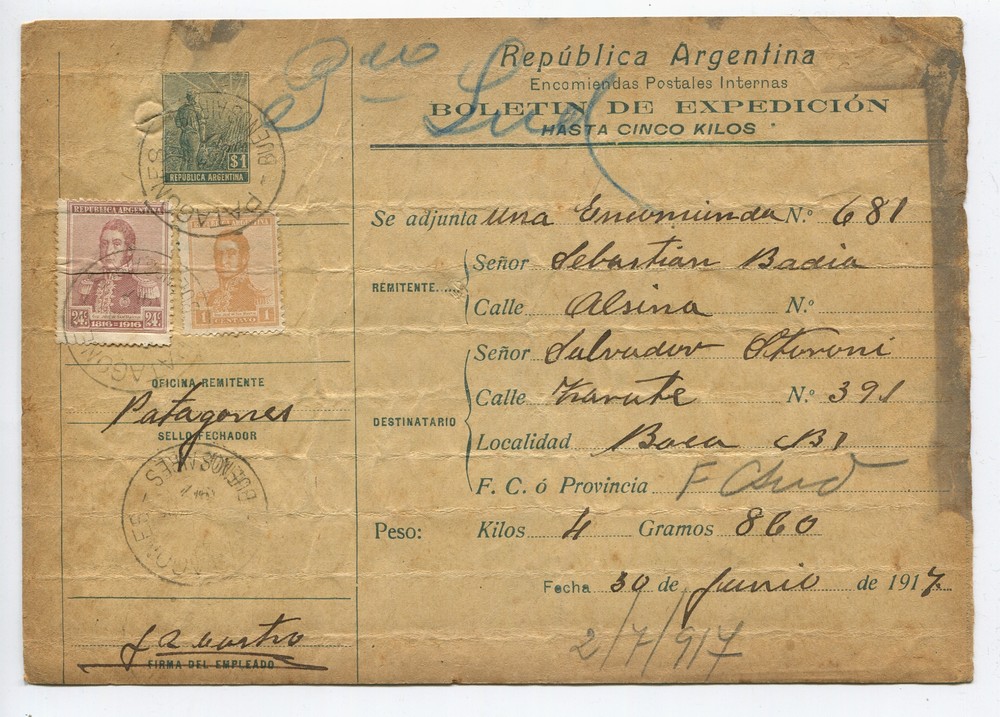 Pzo Sud
República Argentina
Encomiendas Postales Internas
BOLETIN DE EXPEDICIÓN
HASTA CINCO KILOS
$1
REPÚBLICA ARGENTINA
PATAGONES BUENOS AIRES
REPÚBLICA ARGENTINA
24c 24c
1816=1916
1 CENTAVO 1
OFICINA REMITENTE
Patagones
SELLO FECHADOR
PATAGONES BUENOS AIRES
FIRMA DEL EMPLEADO
Se adjunta una Encomienda N.º 681
REMITENTE
Señor Sebastián Badia
Calle Alsina N.º
DESTINATARIO
Señor Salvador Storoni
Calle Zarate N.º 391
Localidad Boca Bs
F. C. ó Provincia F C Sud
Peso: Kilos 4 Gramos 860
Fecha 30 de Junio de 1917
2/7/917